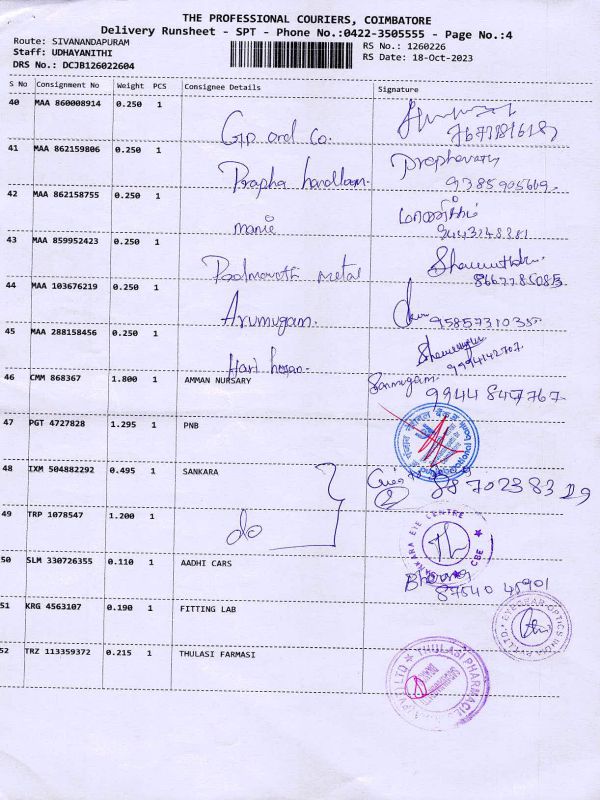 THE PROFESSIONAL COURIERS, COIMBATORE
Delivery Runsheet - SPT - Phone No.:0422-3505555 - Page No.:4
Route: SIVANANDAPURAM
Staff: UDHAYANITHI
DRS No.: DCJB126022604
RS No.: 1260226
RS Date: 18-Oct-2023
S No Consignment No Weight PCS Consignee Details Signature
40 MAA 860008914 0.250 1
and Co.
41 MAA 862159806 0.250 1
Prapha
9385905669
42 MAA 862158755 0.250 1
43 MAA 859952423 0.250 1
metal
8667785083
44 MAA 103676219 0.250 1
Arumugam.
9585731035
45 MAA 288158456 0.250 1
Hari
9994142707
46 CMM 868367 1.800 1 AMMAN NURSARY
Sanmugam
9944847767
47 PGT 4727828 1.295 1 PNB
48 IXM 504882292 0.495 1 SANKARA
8870238329
49 TRP 1078547 1.200 1 do
SANKARA EYE CENTRE CBE
50 SLM 330726355 0.110 1 AADHI CARS
87540 45901
51 KRG 4563107 0.190 1 FITTING LAB
52 TRZ 113359372 0.215 1 THULASI FARMASI
THULASI PHARMACIES